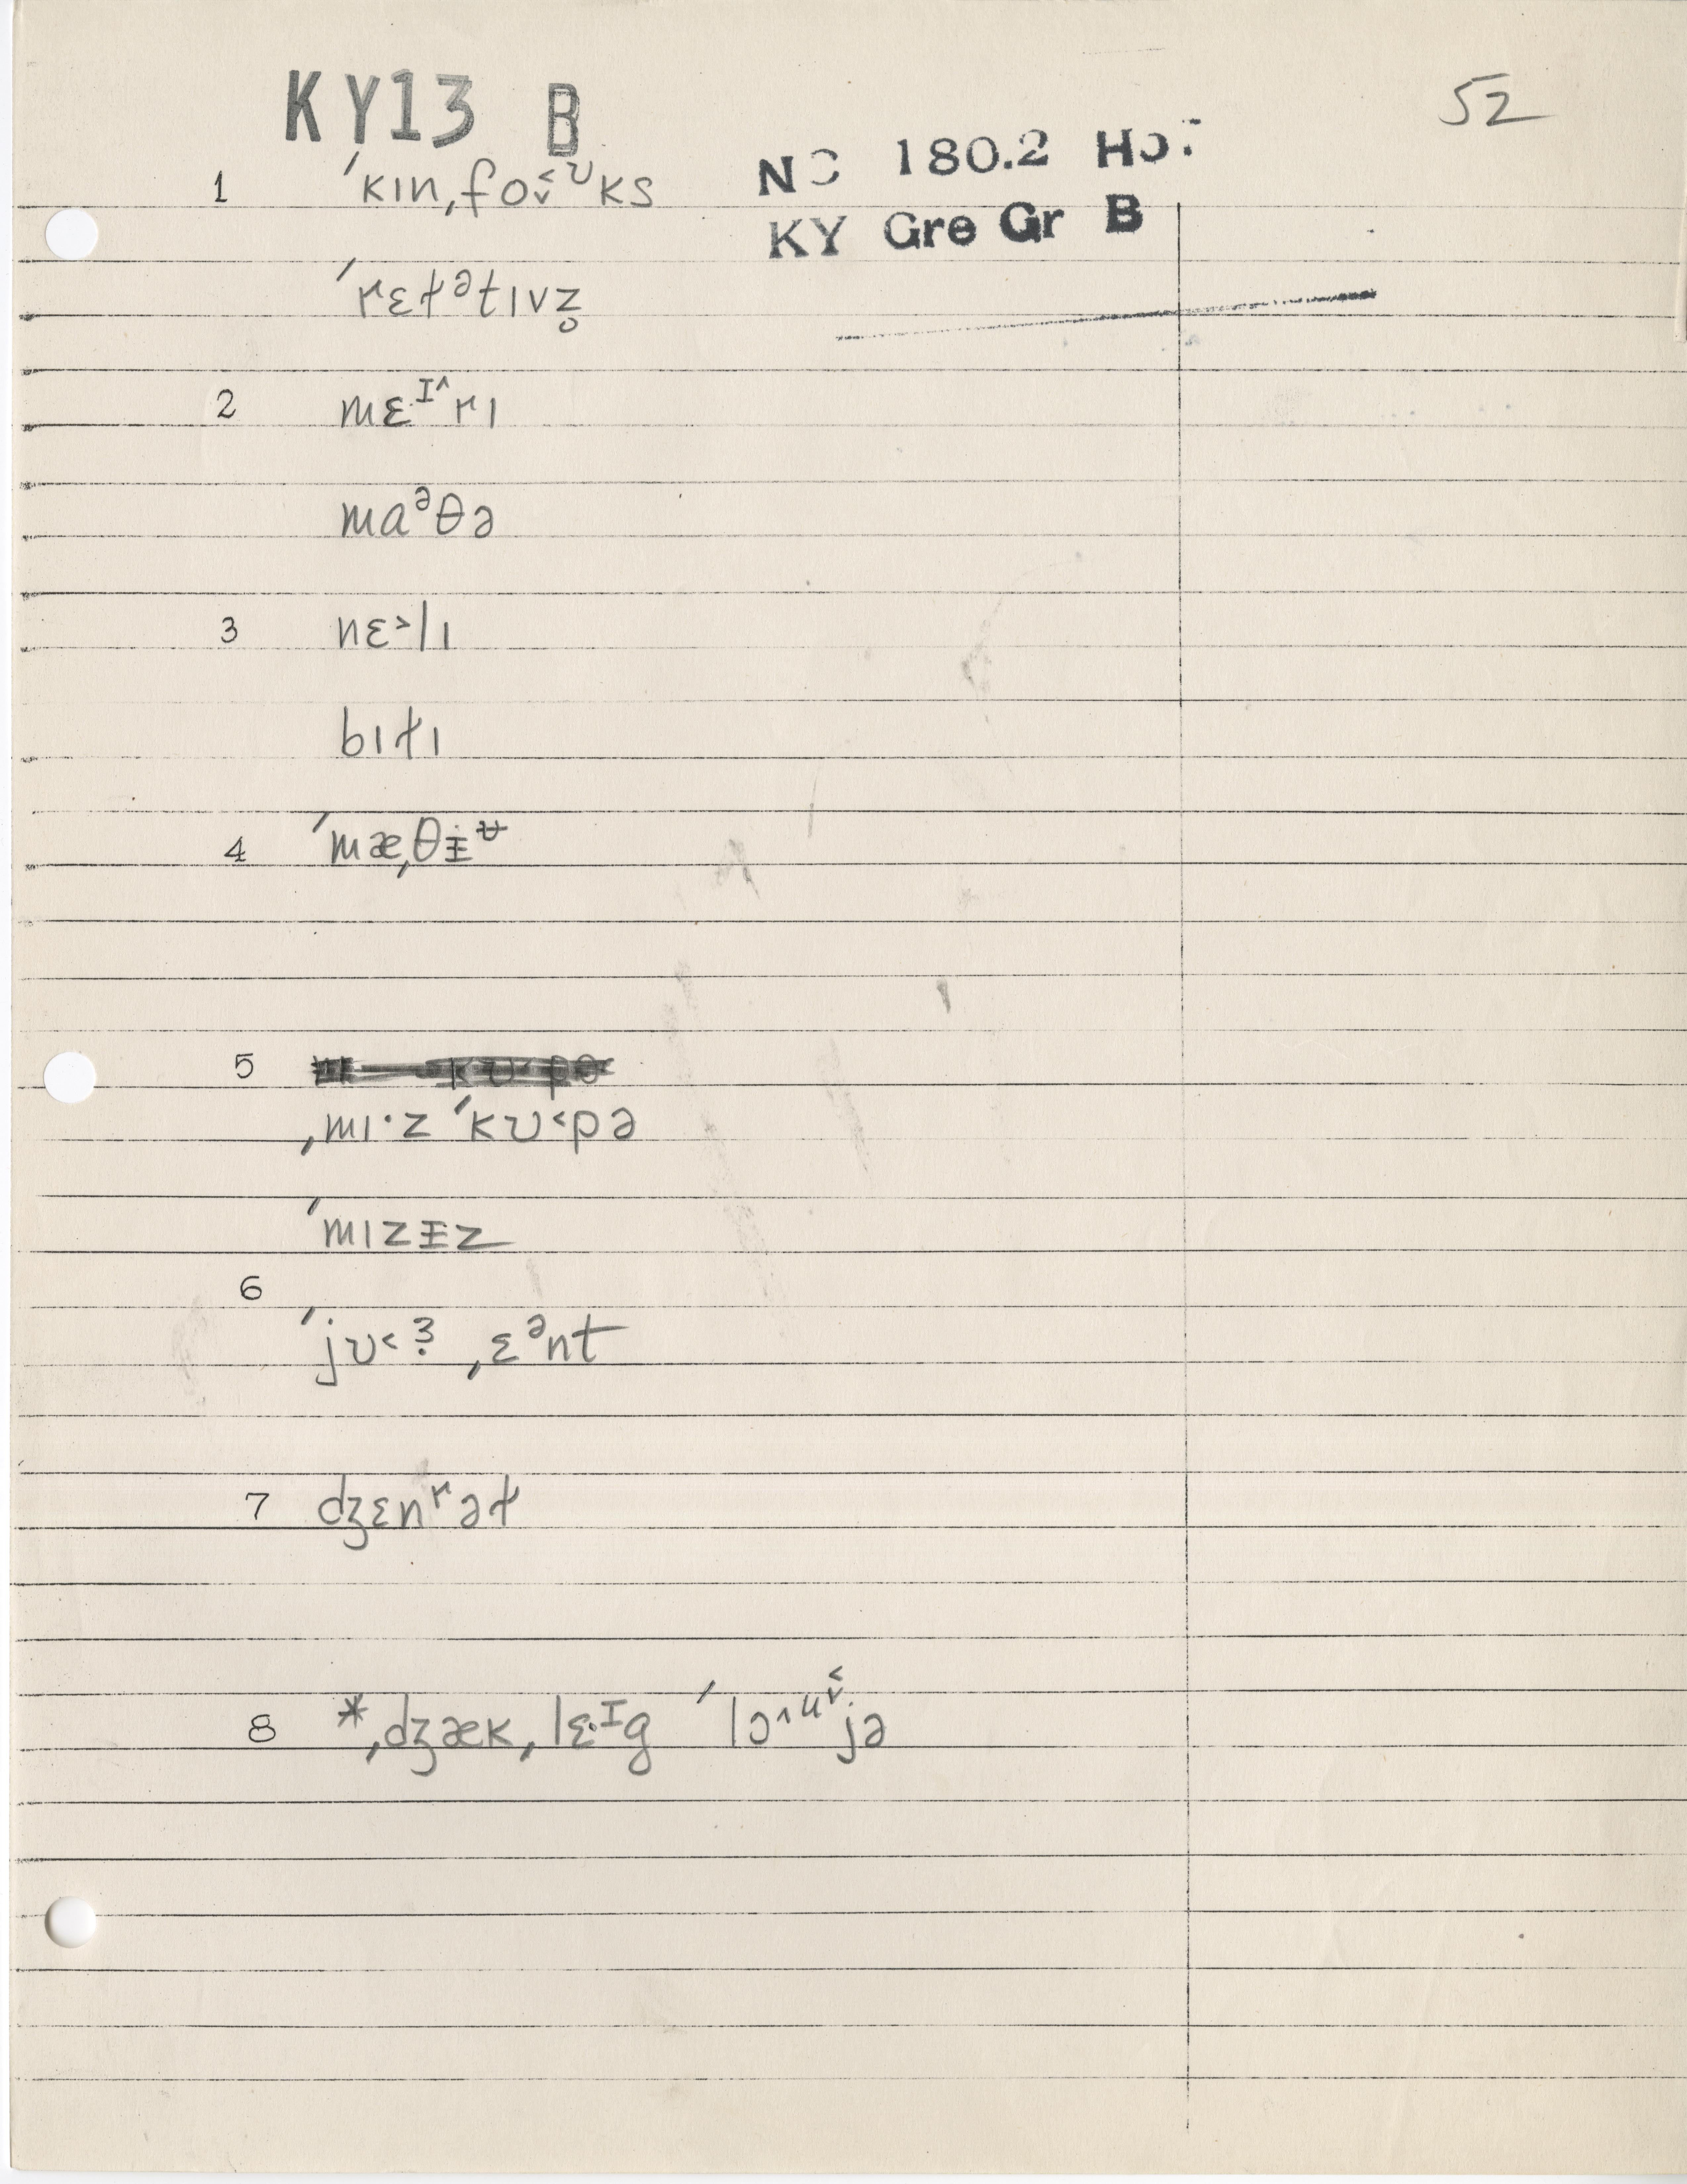 KY13 B
52
NC 180.2 Ho.
KY Gre Gr B
1 ˈkɪnˌfo˂˅ᶷks
ˈrɛɫᵊtɪvz̥
2 mɛᶦ^rɪ
maᵊθə
3 nɛ˃lɪ
bɪɫɪ
4 ˈmæˌθɨᶶ
5
ˌmɪ·z ˈkʊ˂pə
ˈmɪzɨz
6
ˈjʊ˂ɜ̣ ˌɛᵊnt
7 dʒɛnʳəɫ
8 *ˌdʒækˌlɛ·ᶦg ˈlɔ^ᶣ˂˅jə